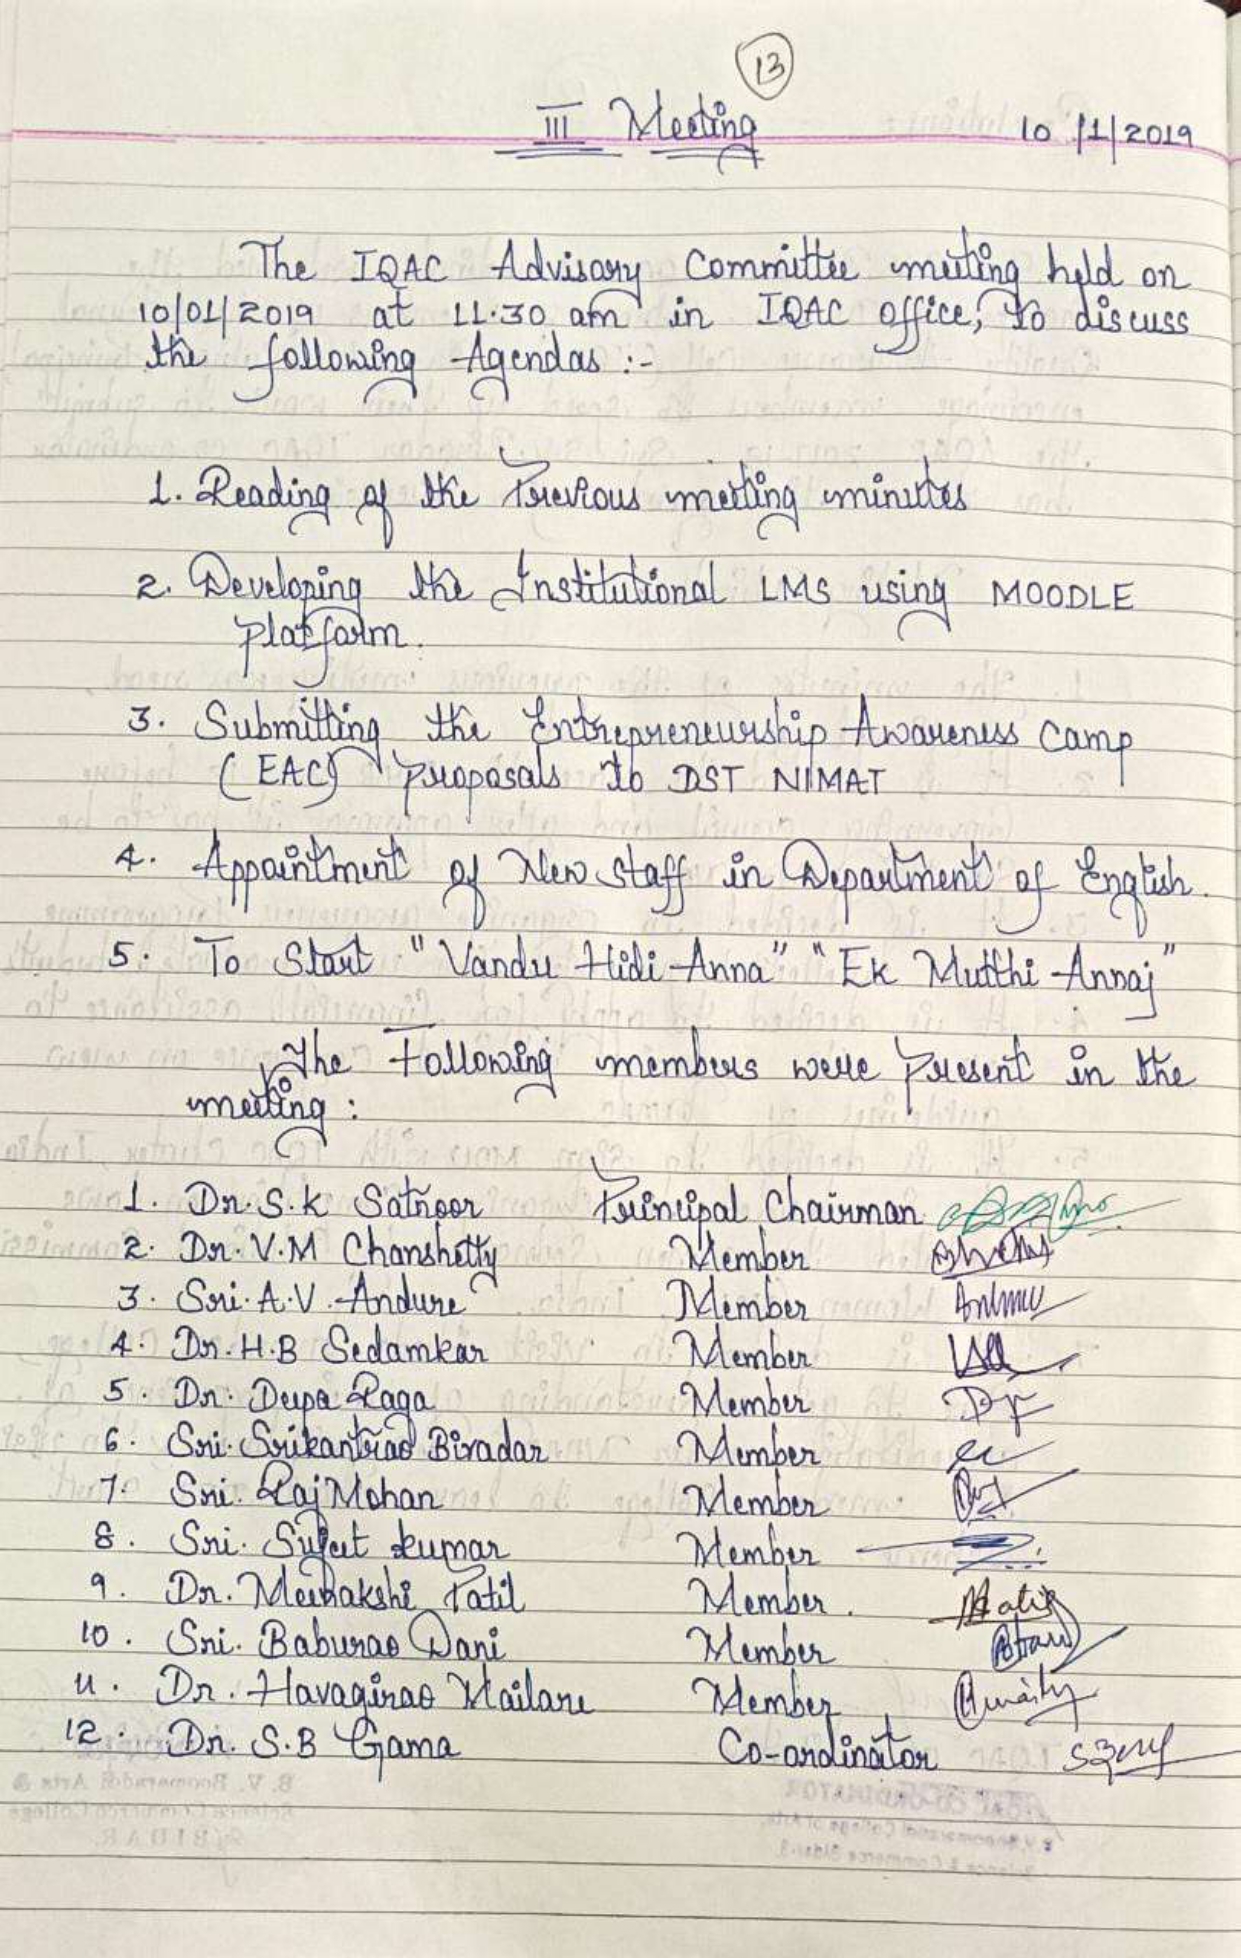 13
III Meeting
10/1/2019
The IQAC Advisory Committee meeting held on
10/01/2019 at 11.30 am in IQAC office, to discuss
the following Agendas :-
1. Reading of the Previous meeting minutes
2. Developing the Institutional LMS using MOODLE
platform.
3. Submitting the Entrepreneurship Awareness Camp
(EAC) proposals to DST NIMAT
4. Appointment of New staff in Department of English.
5. To Start "Vandu Hidi Anna" "Ek Mutthi Annaj"
The Following members were Present in the
meeting :
1. Dr. S.K Satnoor Principal Chairman
2. Dr. V.M Chanshetty Member
3. Sri. A.V. Andure Member
4. Dr. H.B Sedamkar Member
5. Dr. Deepa Raga Member
6. Sri. Srikantrao Biradar Member
7. Sri. Raj Mohan Member
8. Sri. Sujeet kumar Member
9. Dr. Meenakshi Patil Member.
10. Sri. Baburao Dani Member
11. Dr. Havagirao Mailare Member
12. Dr. S.B Gama Co-ordinator